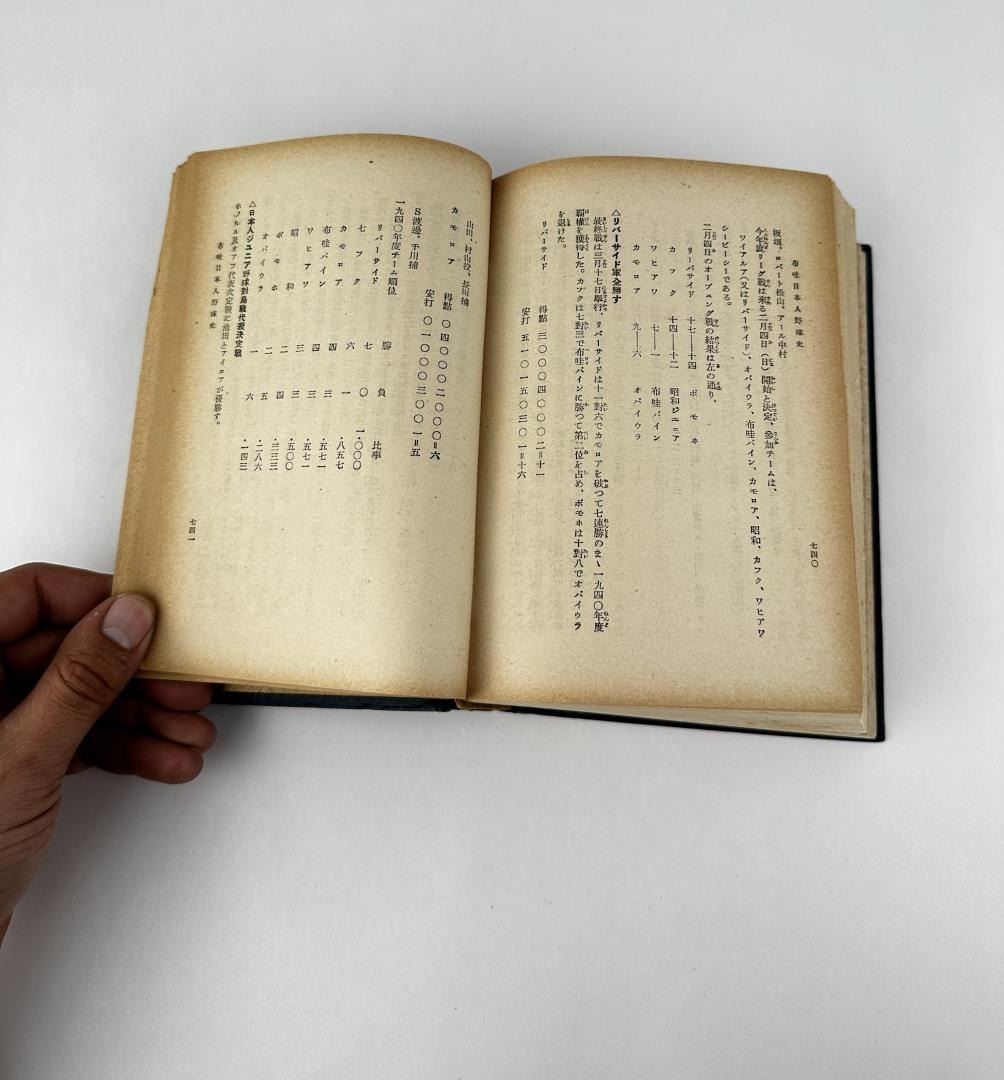 布哇日本人野球史
七四〇
板垣、ロバート松山、アール中村
今年度リーグ戰は來る二月四日（日）開始と決定、參加チームは、
ワイアルア（又はリバーサイド）、オパイウラ、布哇パイン、カモロア、昭和、カフク、ワヒアワ
シーピーシーである。
二月四日のオープニング戰の結果は左の通り、
リバーサイド 十七――十四 ポモホ
カフク 十四――十二 昭和ジユニア
ワヒアワ 七――一 布哇パイン
カモロア 九――六 オパイウラ
△リバーサイド軍全勝す
最終戰は三月十七日擧行、リバーサイドは十一對六でカモロアを破つて七連勝のまゝ一九四〇年度
覇權を獲得した。カフクは七對三で布哇パインに勝つて第二位を占め、ポモホは十對八でオパイウラ
を退けた。
リバーサイド
得點 三〇〇〇四〇〇〇二＝十一
安打 五一〇一五〇三〇一＝十六
山田、村山投、長田捕
カモロア
得點 〇四〇〇〇二〇〇〇＝六
安打 〇一〇〇〇三〇〇一＝五
S渡邊、千川捕
一九四〇年度チーム順位
勝 負 比率
リバーサイド 七 〇 一・〇〇〇
カフク 六 一 ・八五七
カモロア 四 三 ・五七一
布哇パイン 四 三 ・五七一
ワヒアワ 三 三 ・五〇〇
昭和 二 四 ・三三三
ポモホ 二 五 ・二八六
オパイウラ 一 六 ・一四三
△日本人ジユニア野球對島戰代表決定戰
ホノルル及オアフ代表決定戰に池田とアイエアが優勝す。
布哇日本人野球史
七四一